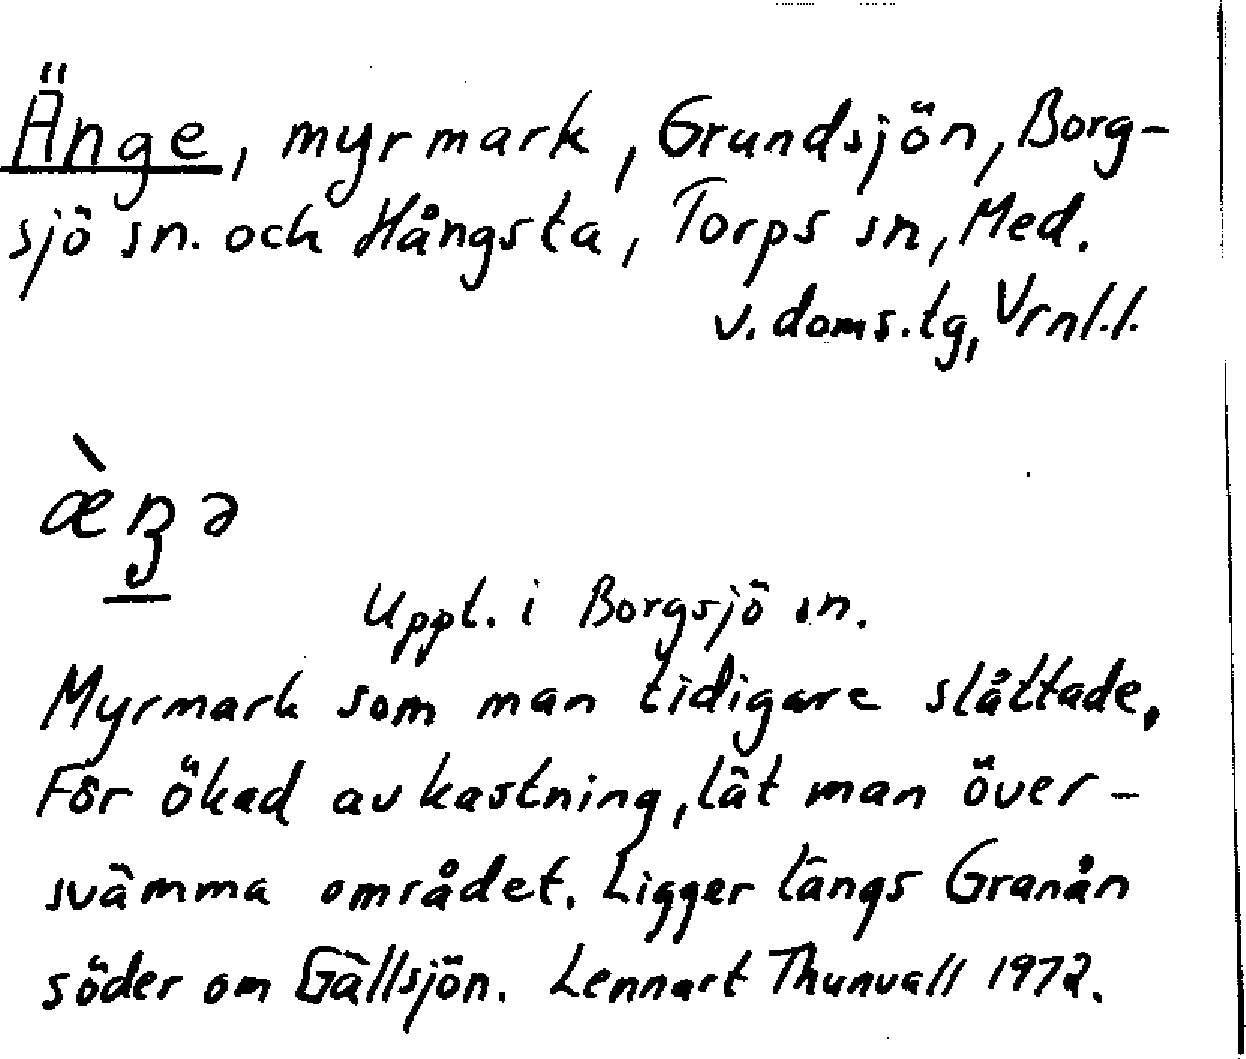 Änge, myrmark, Grundsjön, Borg-
sjö sn. och Hångsta, Torps sn, Med.
v. doms.tg, Vrnl.l.
æ̀ŋə
Uppt. i Borgsjö sn.
Myrmark som man tidigare slåttade.
För ökad avkastning, lät man över-
svämma området. Ligger längs Granån
söder om Gällsjön. Lennart Thunvall 1972.